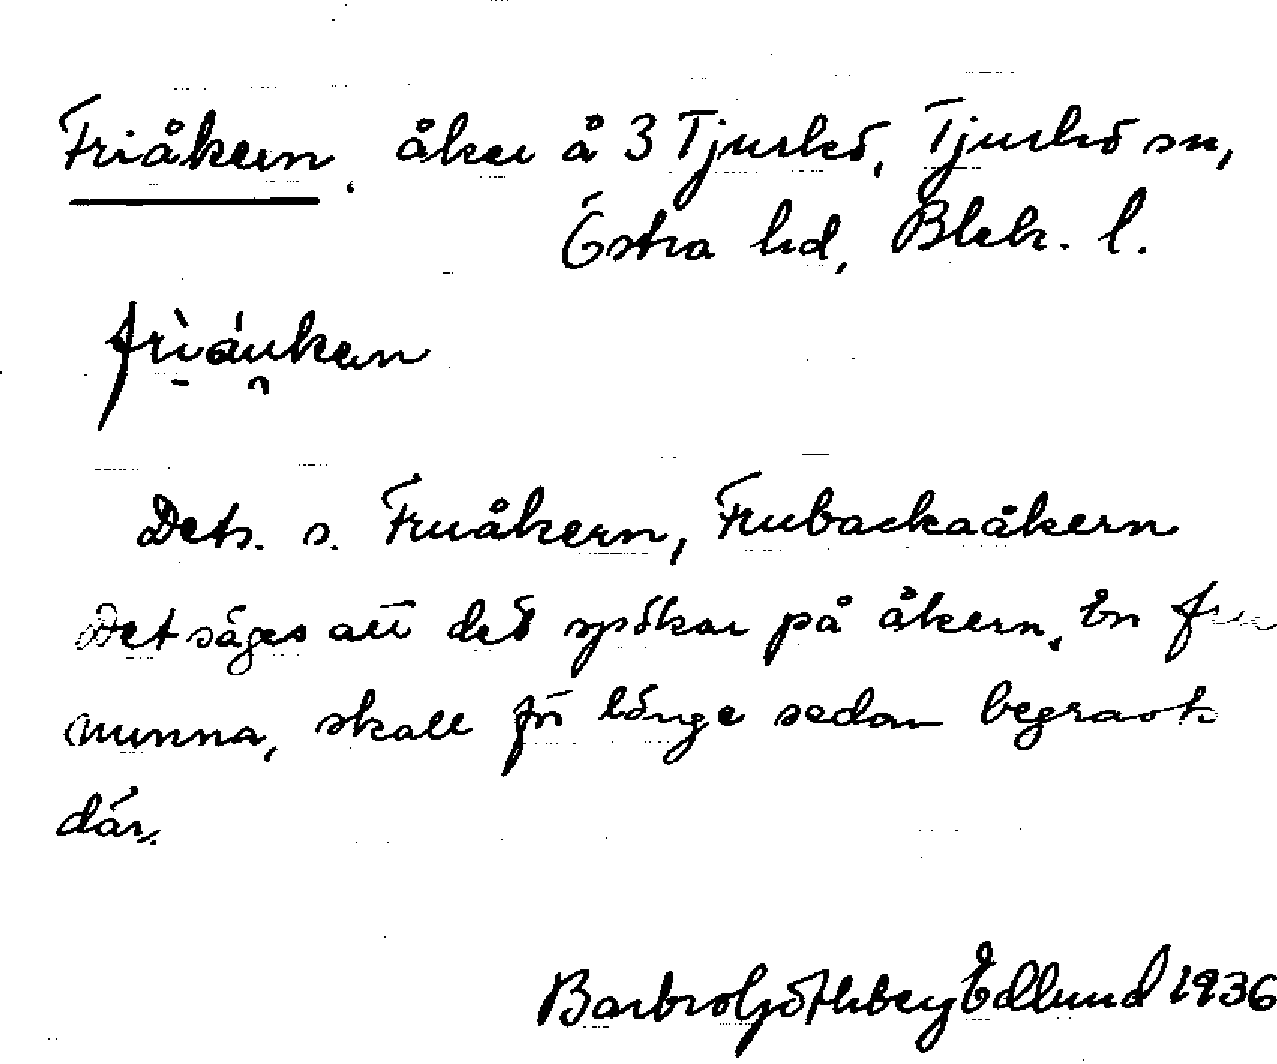 Friåkern, åker å 3 Tjurkö, Tjurkö sn,
Östra hd, Blek. l.
friáuken
Dets. s. Fruåkern, Frubackaåkern
Det säges att det spökar på åkern. En fru
nunna, skall för länge sedan begravts
där.
Barbro Göthberg Edlund 1936